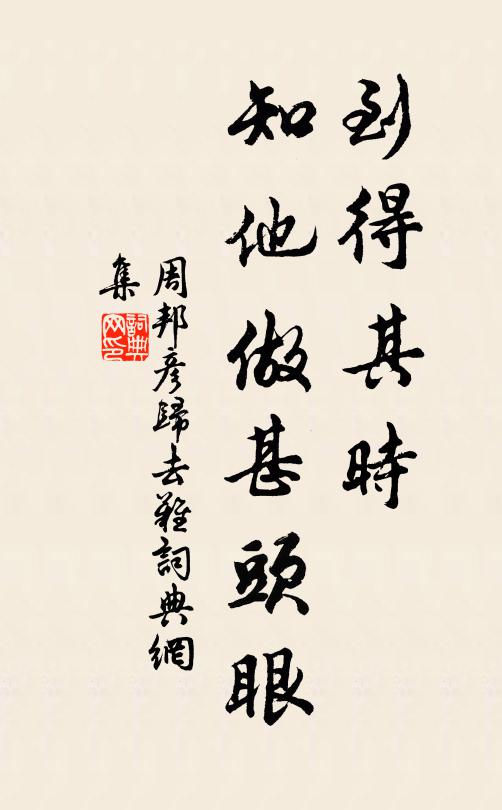 到得其時
知他做甚頭眼
周邦彥歸去難詞典網
集
詞典
网印